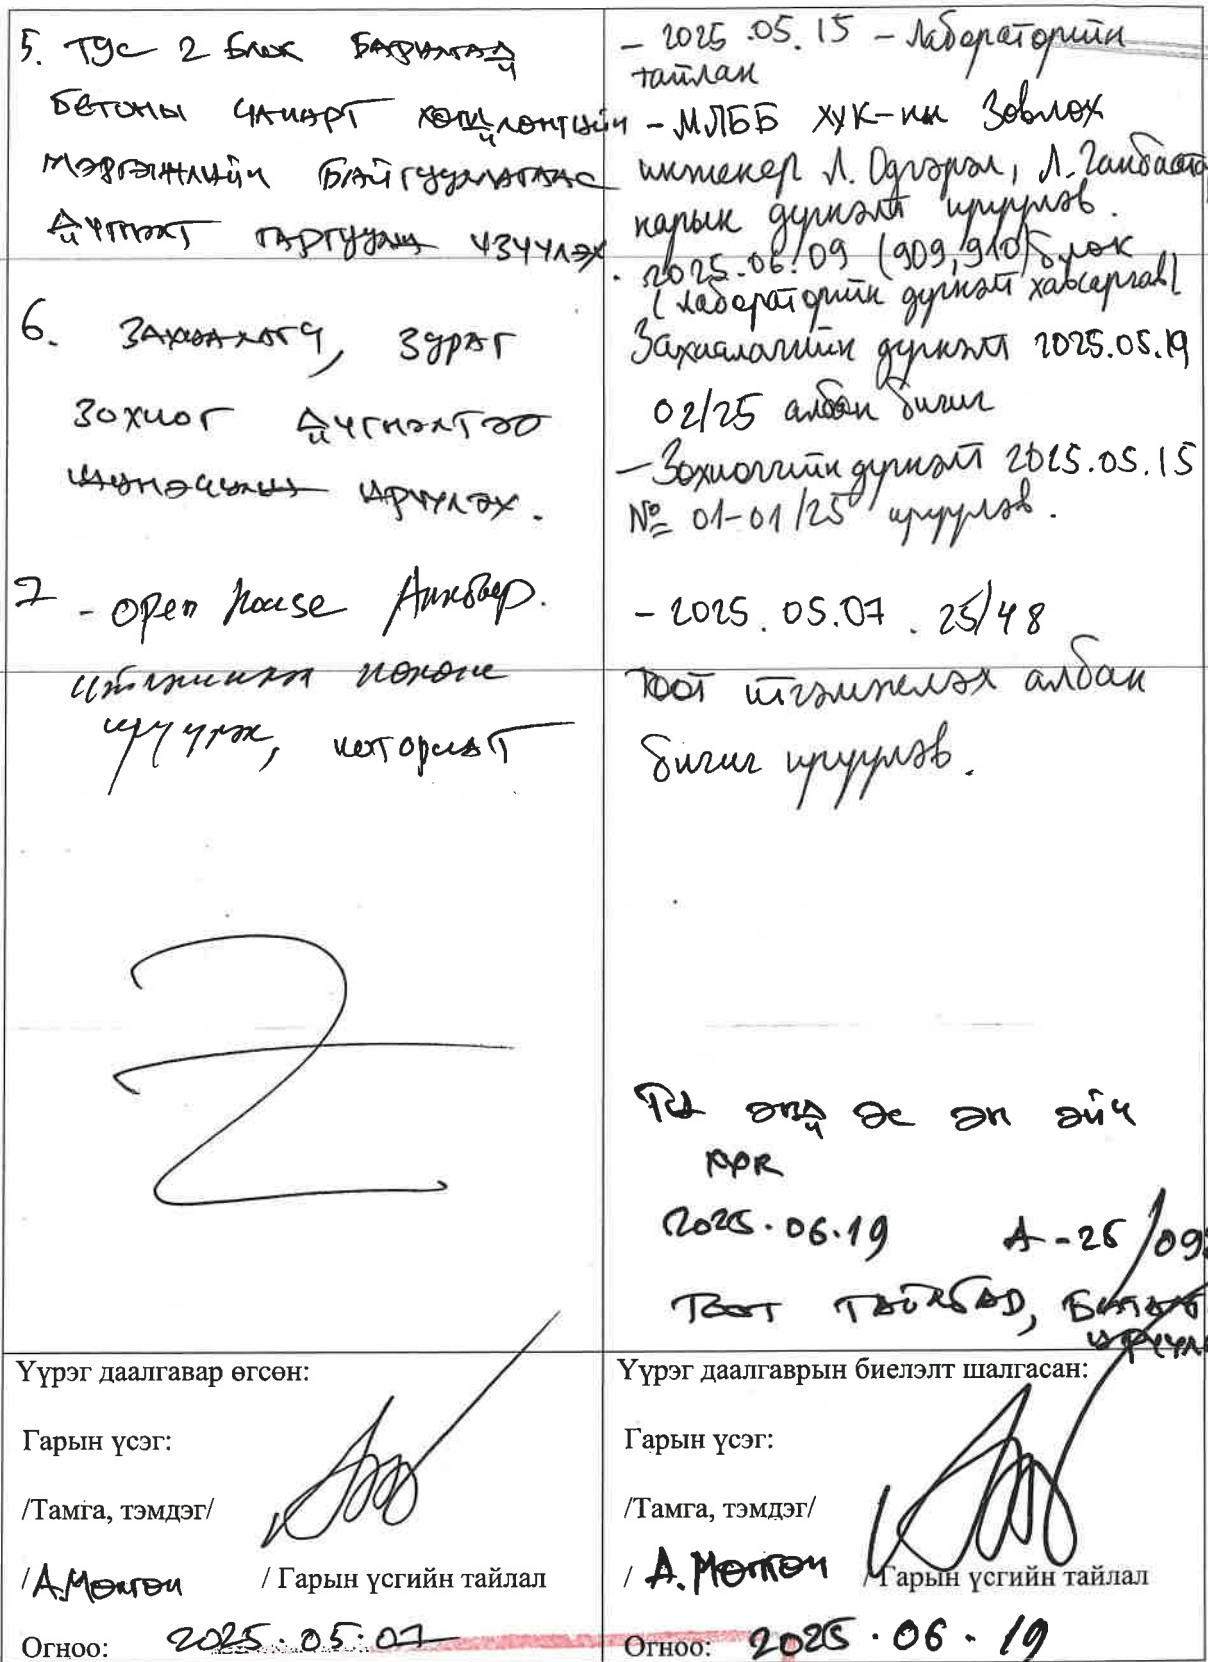 5. Тус 2 блок барилгад
бетоны чанарт хөндлөнгийн
мэргэжлийн байгууллагаас
дүгнэлт гаргуулж ирүүлэх.
6. Захиалагч, зураг
зохиог дүгнэлтээ
ирүүлэх.
7 - open house
ирүүлэх,
- 2025.05.15 - Лабораторийн
тайлан
- МЛББ ХУК-ийн Зөвлөх
инженер Л. Одгэрэл, Л. Ганбаатар
нарын дүгнэлт ирүүлэв.
2025.06.09 (909, 910) блок
(лабораторийн дүгнэлт хавсаргав)
Захиалагчийн дүгнэлт 2025.05.19
02/25 албан бичиг
- Зохиогчийн дүгнэлт 2025.05.15
№ 01-01/25 ирүүлэв.
- 2025.05.07. 25/48
тоот итгэмжлэх албан
бичиг ирүүлэв.
энд эс эн эйч
ХХК
2025.06.19 А-25/09
Тоот тайлбар,
Үүрэг даалгавар өгсөн:
Гарын үсэг:
/Тамга, тэмдэг/
/А.Мөнгөн / Гарын үсгийн тайлал
Огноо: 2025.05.07
Үүрэг даалгаврын биелэлт шалгасан:
Гарын үсэг:
/Тамга, тэмдэг/
/ А.Мөнгөн / Гарын үсгийн тайлал
Огноо: 2025.06.19